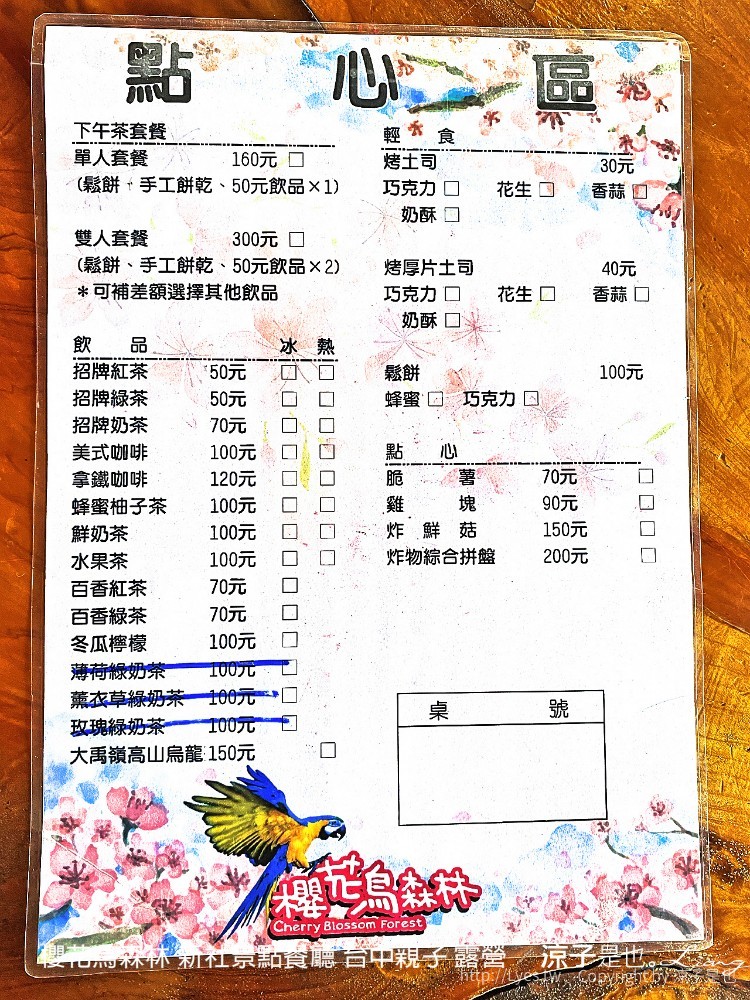 點心區
下午茶套餐
單人套餐 160元 □
(鬆餅、手工餅乾、50元飲品×1)
雙人套餐 300元 □
(鬆餅、手工餅乾、50元飲品×2)
*可補差額選擇其他飲品
飲品 冰 熱
招牌紅茶 50元 □ □
招牌綠茶 50元 □ □
招牌奶茶 70元 □ □
美式咖啡 100元 □ □
拿鐵咖啡 120元 □ □
蜂蜜柚子茶 100元 □ □
鮮奶茶 100元 □ □
水果茶 100元 □ □
百香紅茶 70元 □
百香綠茶 70元 □
冬瓜檸檬 100元 □
薄荷綠奶茶 100元 □
薰衣草綠奶茶 100元 □
玫瑰綠奶茶 100元 □
大禹嶺高山烏龍 150元 □
輕食
烤土司 30元
巧克力 □ 花生 □ 香蒜 □
奶酥 □
烤厚片土司 40元
巧克力 □ 花生 □ 香蒜 □
奶酥 □
鬆餅 100元
蜂蜜 □ 巧克力 □
點心
脆薯 70元 □
雞塊 90元 □
炸鮮菇 150元 □
炸物綜合拼盤 200元 □
桌號
櫻花鳥森林
Cherry Blossom Forest
櫻花鳥森林 新社景點餐廳 台中親子 露營 / 涼子是也。
http://Lyes.tw Copyright by 涼子是也